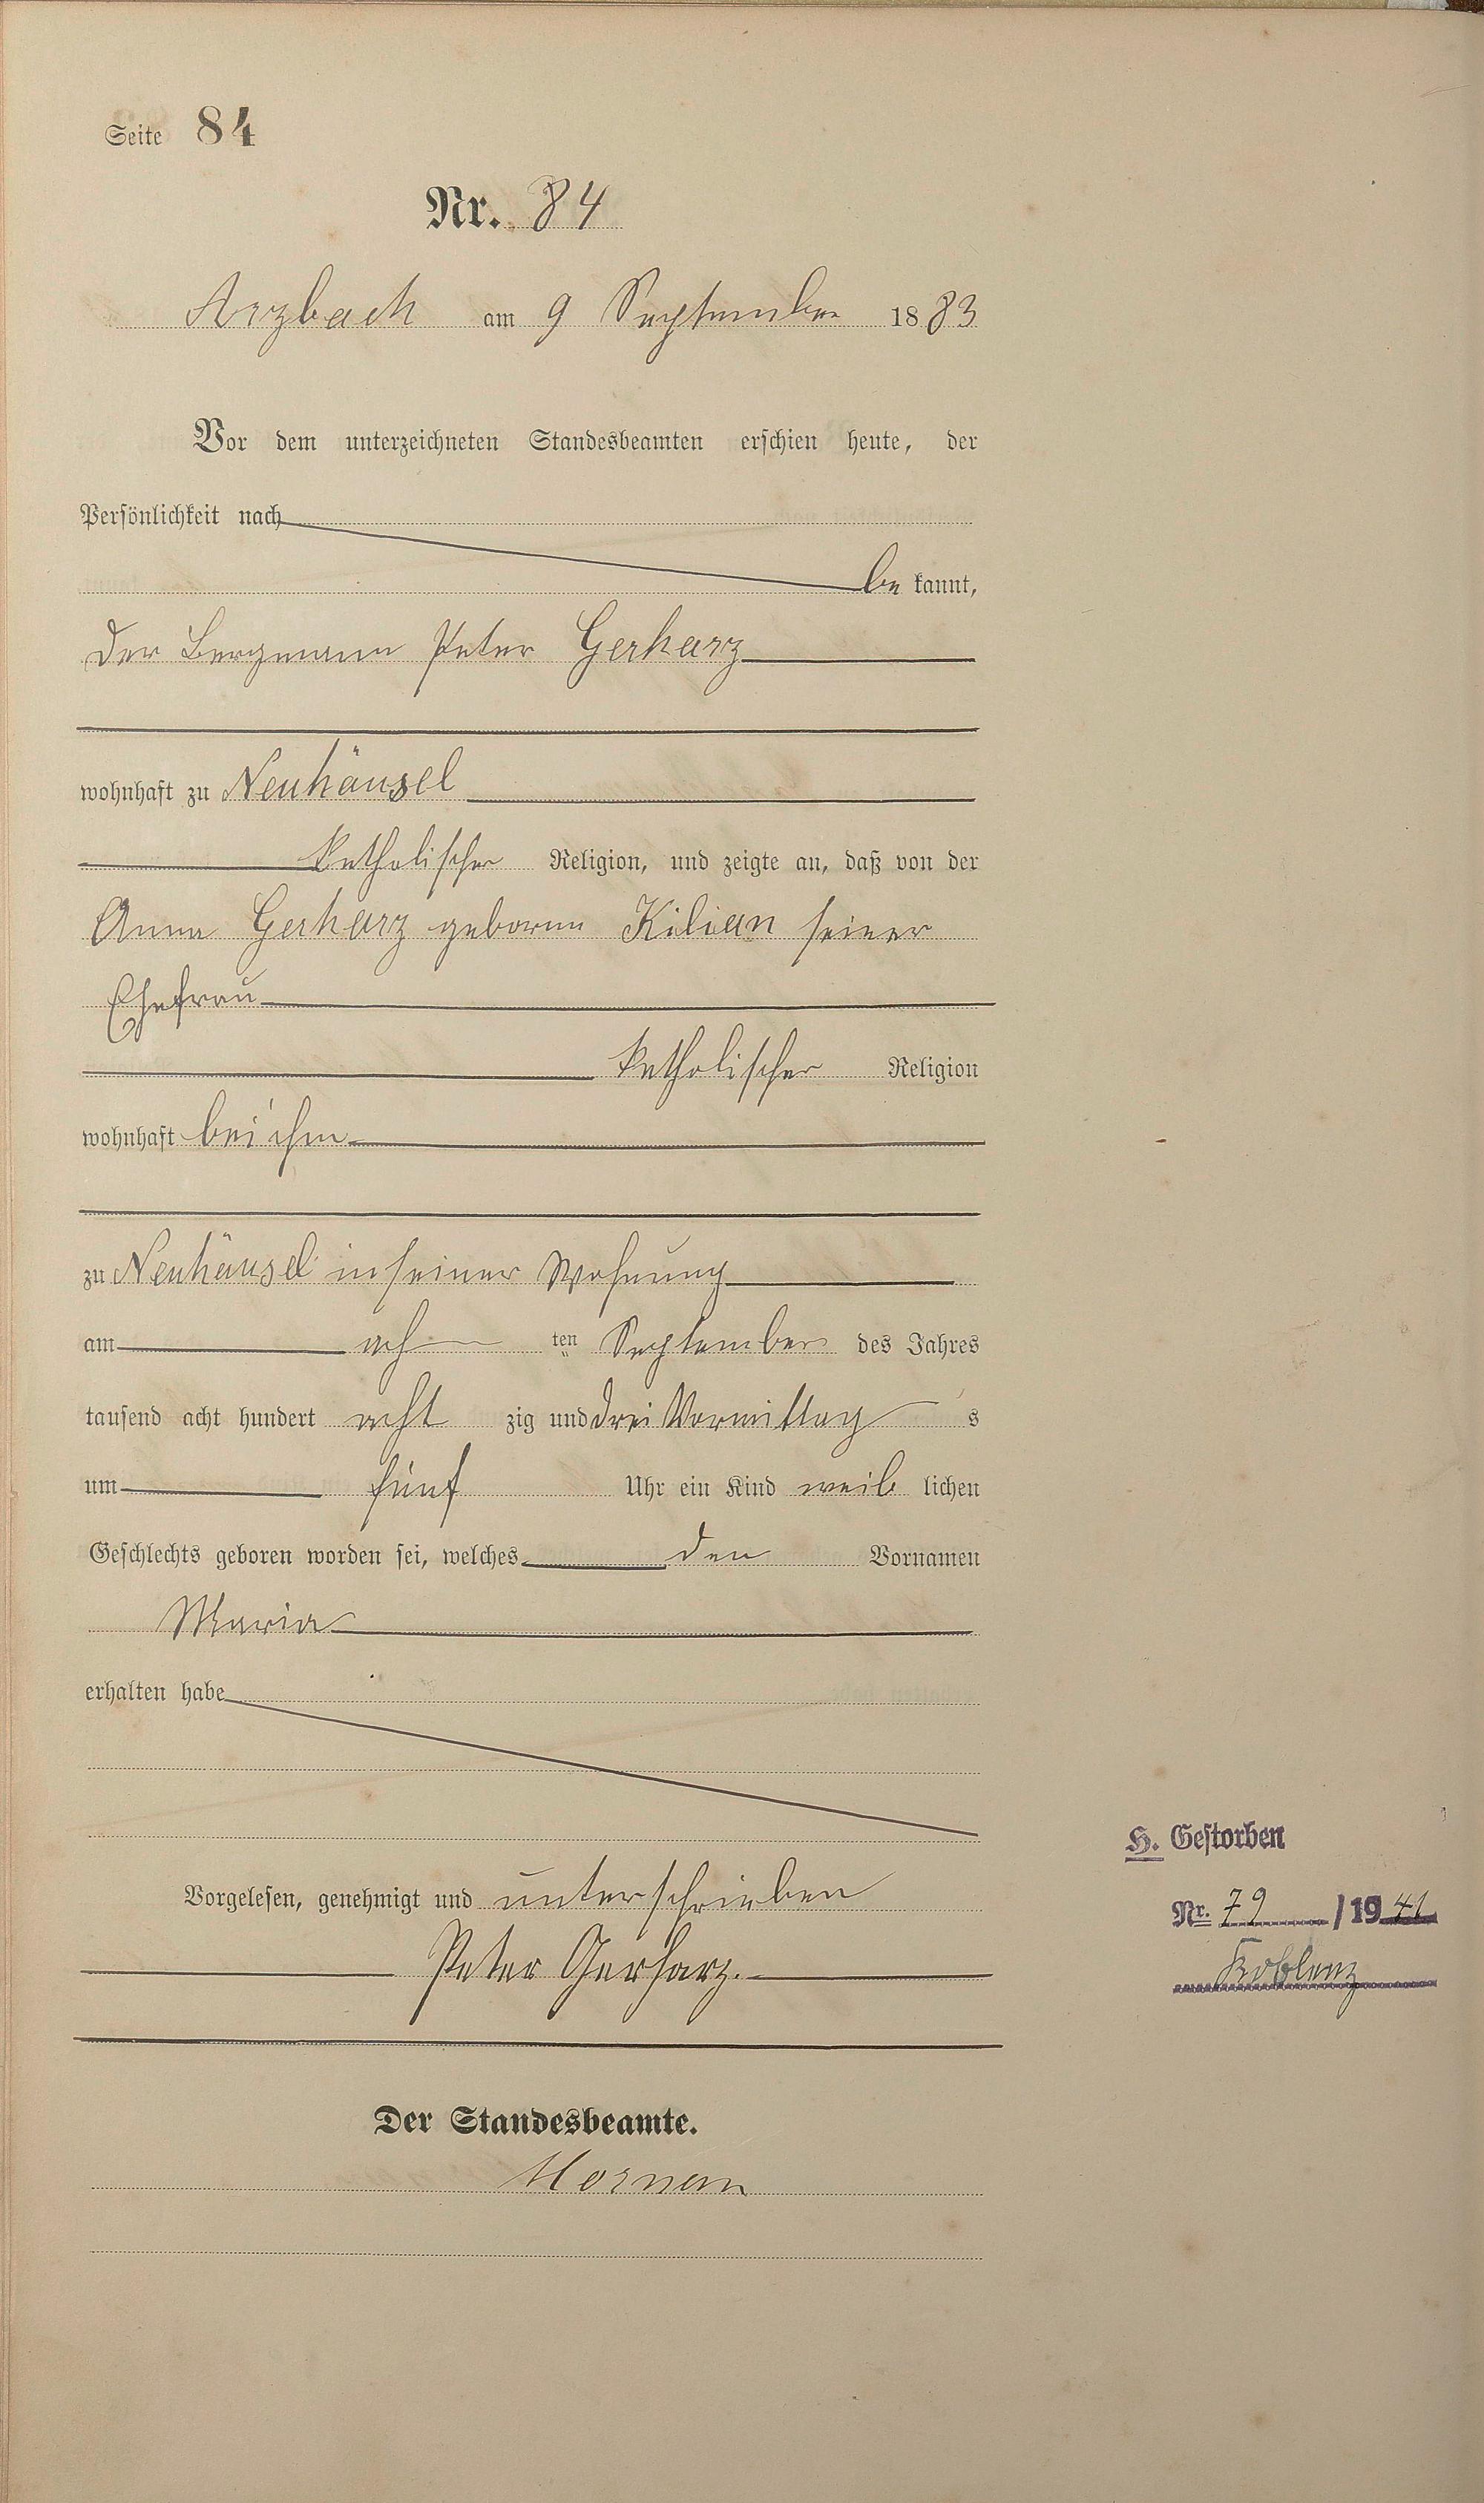 Seite 84
Nr. 84
Arzbach am 9 September 1883
Vor dem unterzeichneten Standesbeamten erschien heute, der
Persönlichkeit nach
be kannt,
der Bergmann Peter Gerharz
wohnhaft zu Neuhäusel
katholischer Religion, und zeigte an, daß von der
Anna Gerharz geborne Kilian seiner
Ehefrau
katholischer Religion
wohnhaft bei ihm
zu Neuhäusel in seiner Wohnung
am ach ten September des Jahres
tausend acht hundert acht zig und drei Vormittag s
um fünf Uhr ein Kind weib lichen
Geschlechts geboren worden sei, welches den Vornamen
Maria
erhalten habe
Vorgelesen, genehmigt und unterschrieben
Peter Gerharz.
Der Standesbeamte.
H. Gestorben
Nr. 79 / 1941
Koblenz